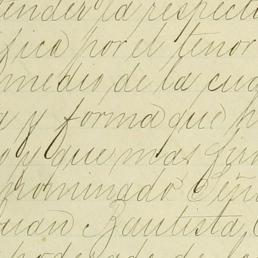 tender la respecti
fica por el tenor
medio de la cua
a y forma que p
o y que mas fir
prominado Seño
Juan Bautista
poder a de la